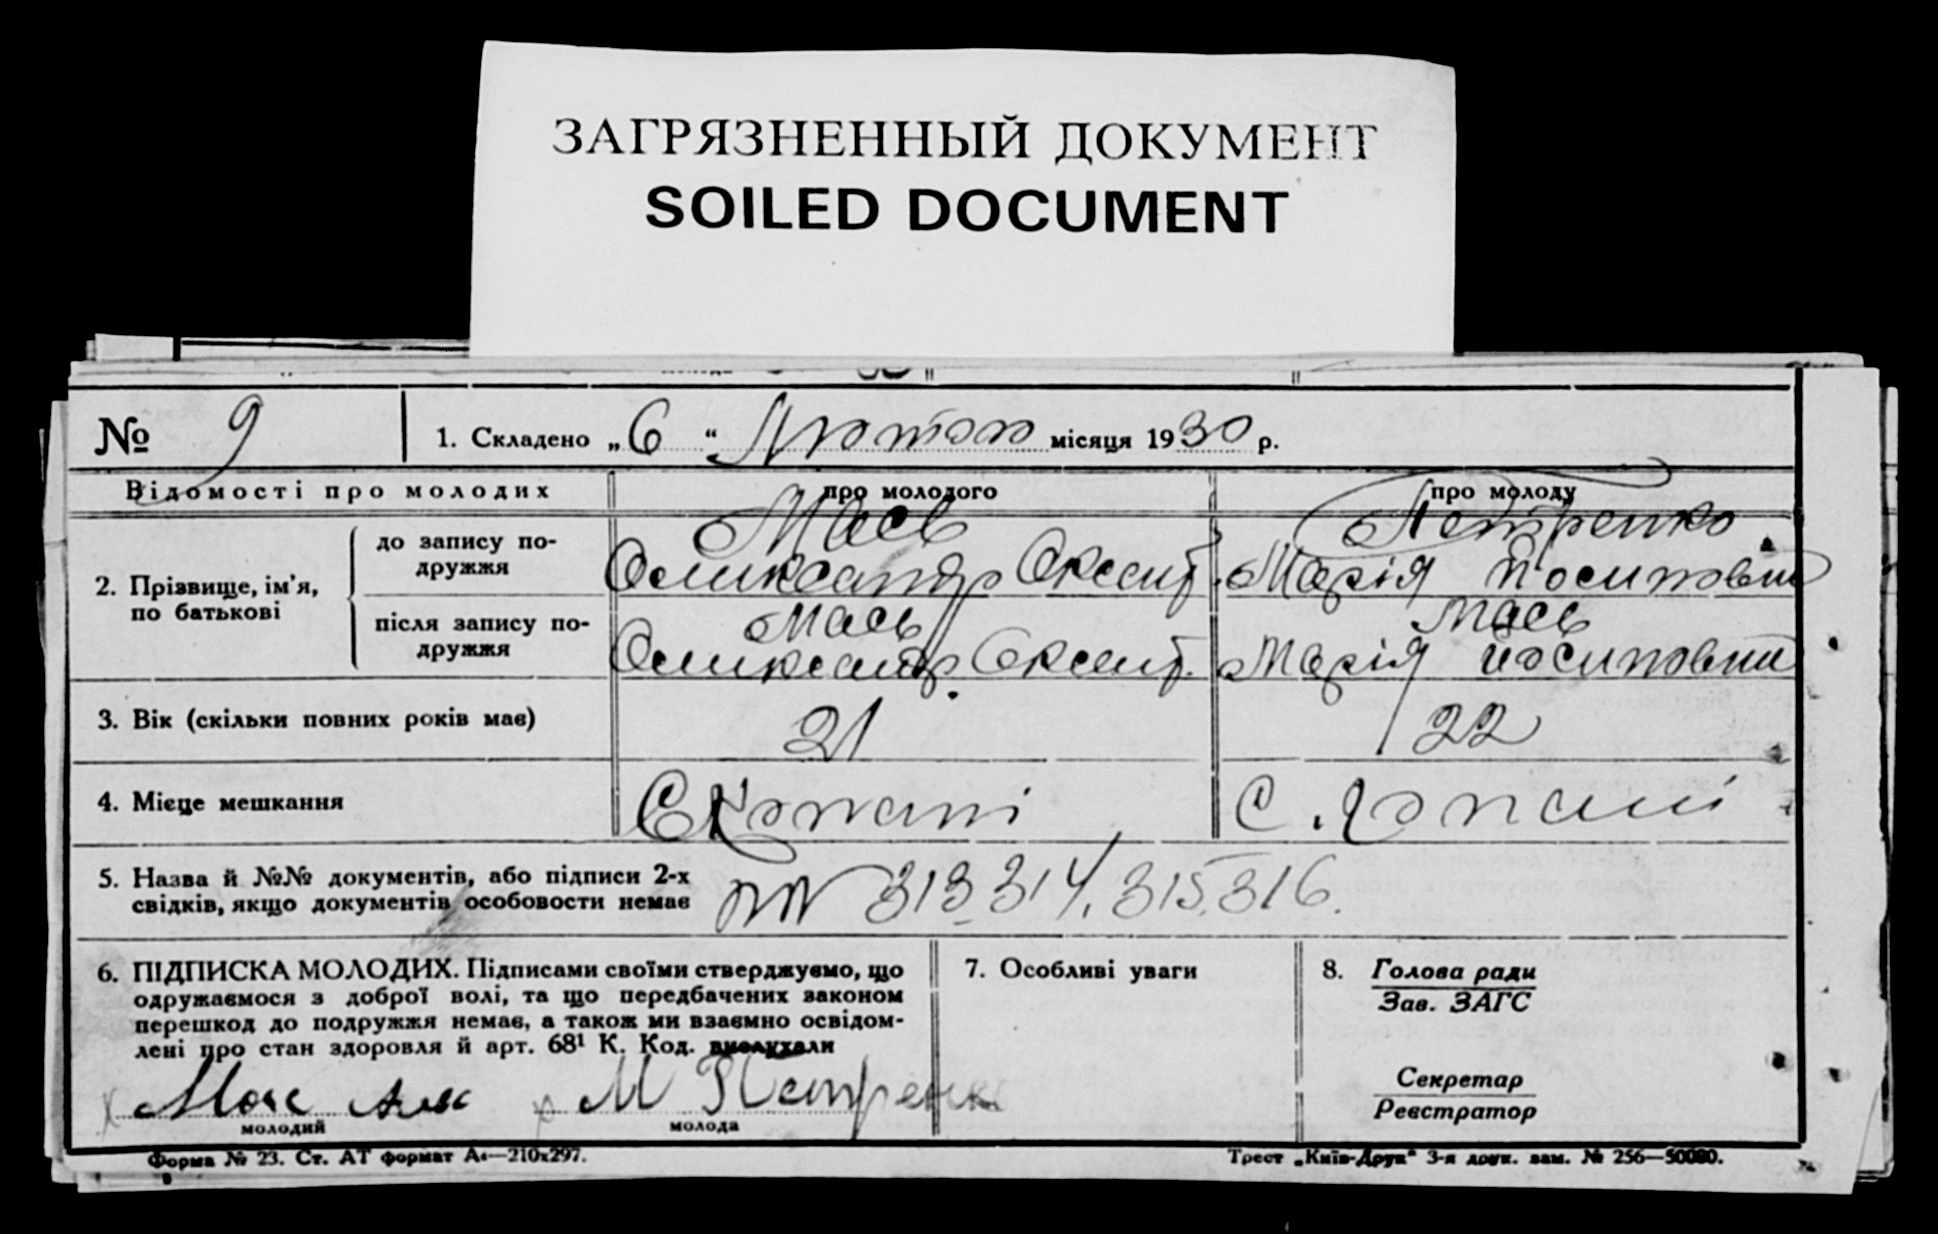 ЗАГРЯЗНЕННЫЙ ДОКУМЕНТ
SOILED DOCUMENT
№ 9
1. Складено „6“ Лютого місяця 1930 р.
Відомості про молодих
про молодого
про молоду
2. Прізвище, ім'я, по батькові
до запису подружжя
Мась
Олександр Оксент.
Петренко
Марія Йосиповна
після запису подружжя
Мась
Олександр Оксент.
Мась
Марія Йосиповна
3. Вік (скільки повних років має)
21
22
4. Місце мешкання
С. Копачі
С. Копачі
5. Назва й №№ документів, або підписи 2-х
свідків, якщо документів особовости немає
NN 313, 314, 315, 316.
6. ПІДПИСКА МОЛОДИХ. Підписами своїми стверджуємо, що
одружаємося з доброї волі, та що передбачених законом
перешкод до подружжя немає, а також ми взаємно освідом-
лені про стан здоровля й арт. 68¹ К. Код. вислухали
х х М Петренко
молодий
молода
7. Особливі уваги
8. Голова ради
Зав. ЗАГС
Секретар
Реєстратор
Форма № 23. Ст. АТ формат А4—210х297.
Трест „Київ-Друк“ 3-я друк. зам. № 256—50000.